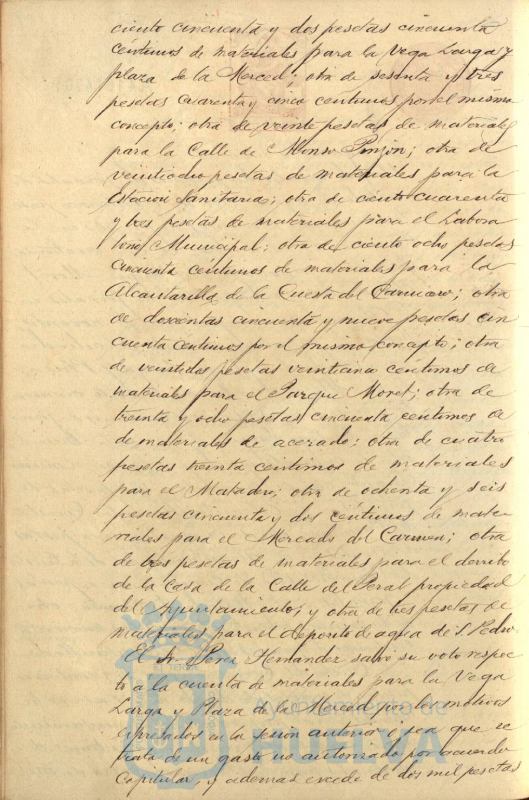 ciento cincuenta y dos pesetas cincuenta
céntimos de materiales para la Vega Larga y
plaza de la Merced; otra de sesenta y tres
pesetas cuarenta y cinco céntimos por el mismo
concepto; otra de veinte pesetas de materiales
para la Calle de Alonso Pinzón; otra de
veintiocho pesetas de materiales para la
Estacion Sanitaria; otra de ciento cuarenta
y tres pesetas de materiales para el Labora
torio Municipal; otra de ciento ocho pesetas
cincuenta centimos de materiales para la
Alcantarilla de la Cuesta del Carnicero; otra
de doscientas cincuenta y nueve pesetas cin
cuenta centimos por el mismo concepto; otra
de veintidos pesetas veinticinco centimos de
materiales para el Parque Moret; otra de
treinta y ocho pesetas cincuenta centimos de
de materiales de acerado; otra de cuatro
pesetas treinta centimos de materiales
para el Matadero; otra de ochenta y seis
pesetas cincuenta y dos céntimos de mate-
riales para el Mercado del Carmen; otra
de tres pesetas de materiales para el derribo
de la Casa de la Calle del Peral propiedad
del Ayuntamiento, y otra de tres pesetas de
materiales para el depósito de agua de S. Pedro.
El Sr. Perez Hernandez salvó su voto respec
to a la cuenta de materiales para la Vega
Larga y Plaza de la Merced por los motivos
expresados en la sesión anterior o sea que se
trata de un gasto no autorizado por acuerdo
capitular, y ademas excede de dos mil pesetas
Ayuntamiento de
HUELVA